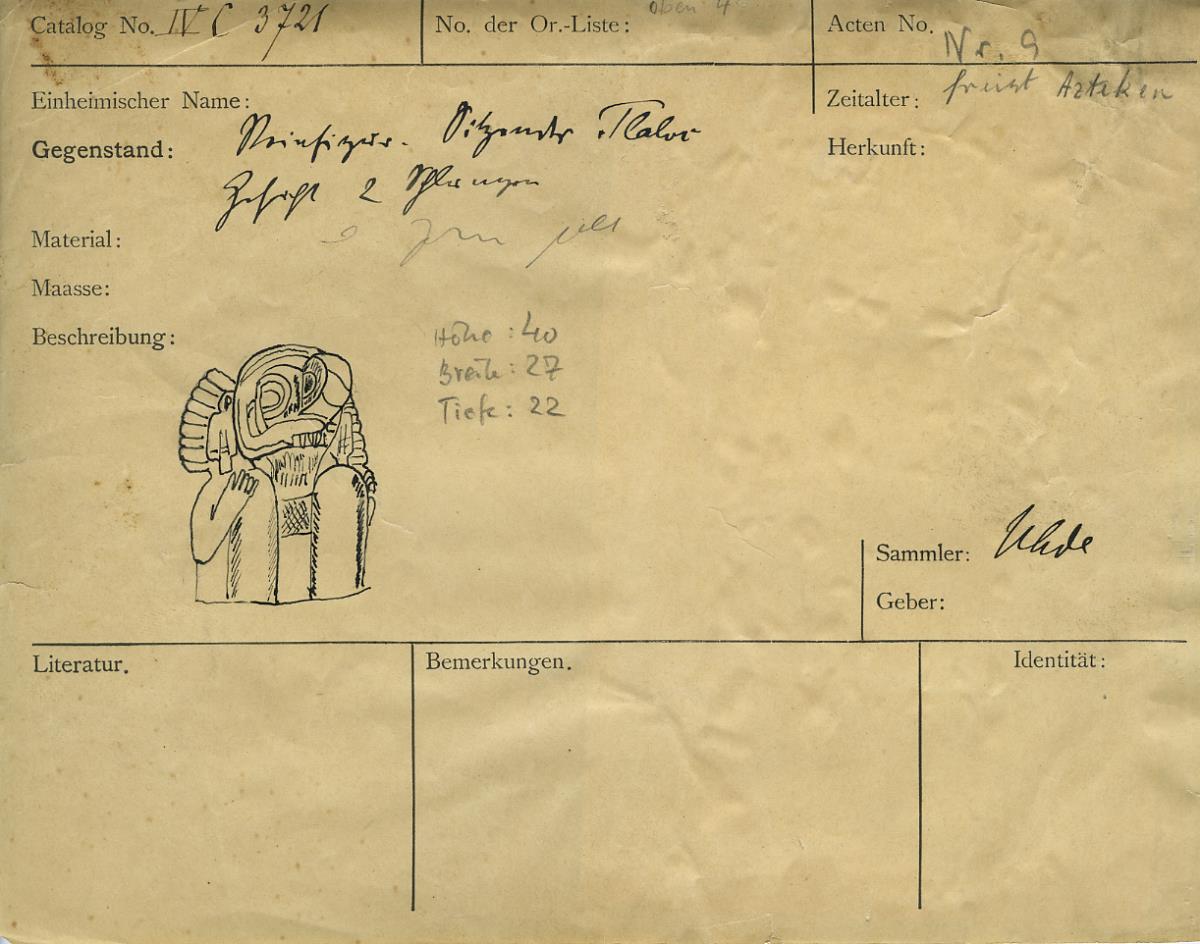 Catalog No. IV C 3721
No. der Or.-Liste: oben 4
Acten No. Nr. 9
Einheimischer Name:
Zeitalter: Azteken
Gegenstand: Steinfigur. Sitzender Tlaloc
Herkunft:
Gesicht 2 Schlangen
Material:
Maasse:
Beschreibung:
Höhe: 40
Breite: 27
Tiefe: 22
Sammler: Uhde
Geber:
Literatur.
Bemerkungen.
Identität: